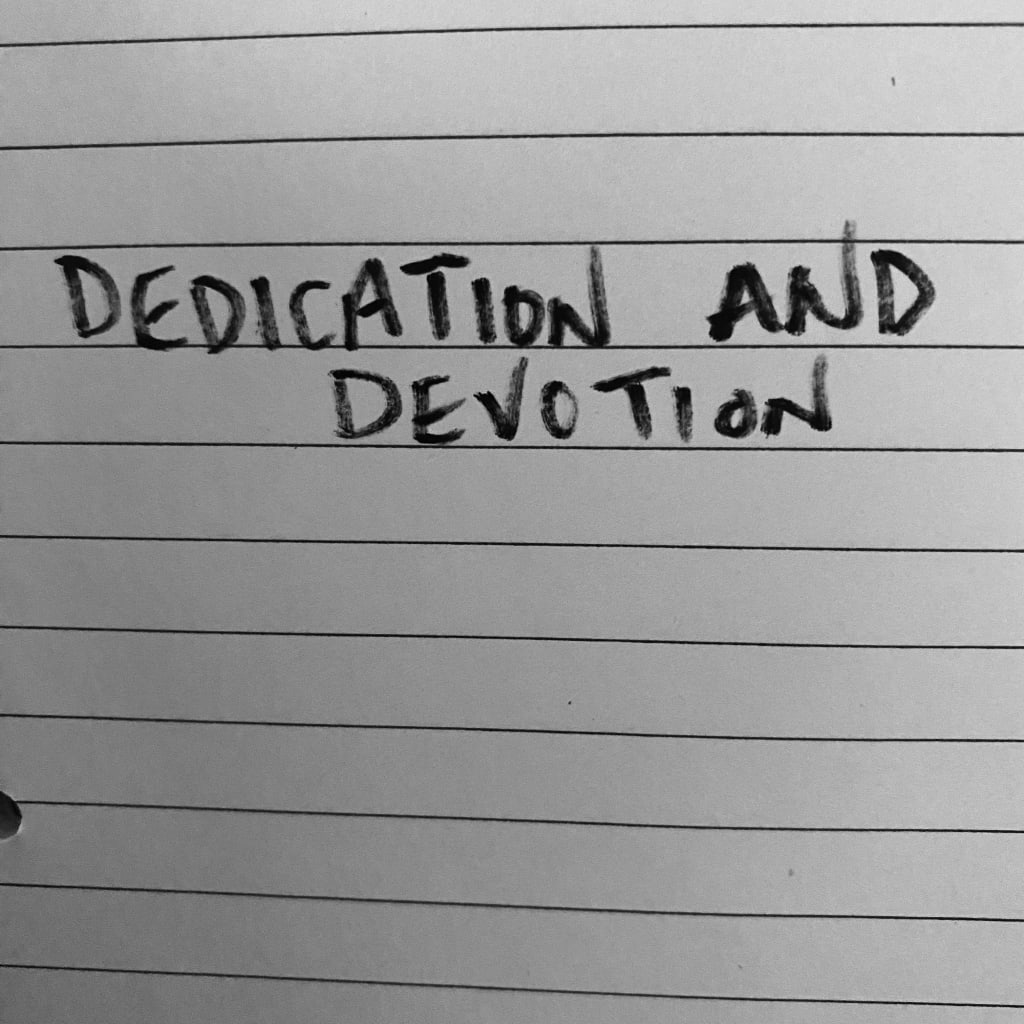 DEDICATION AND
DEVOTION